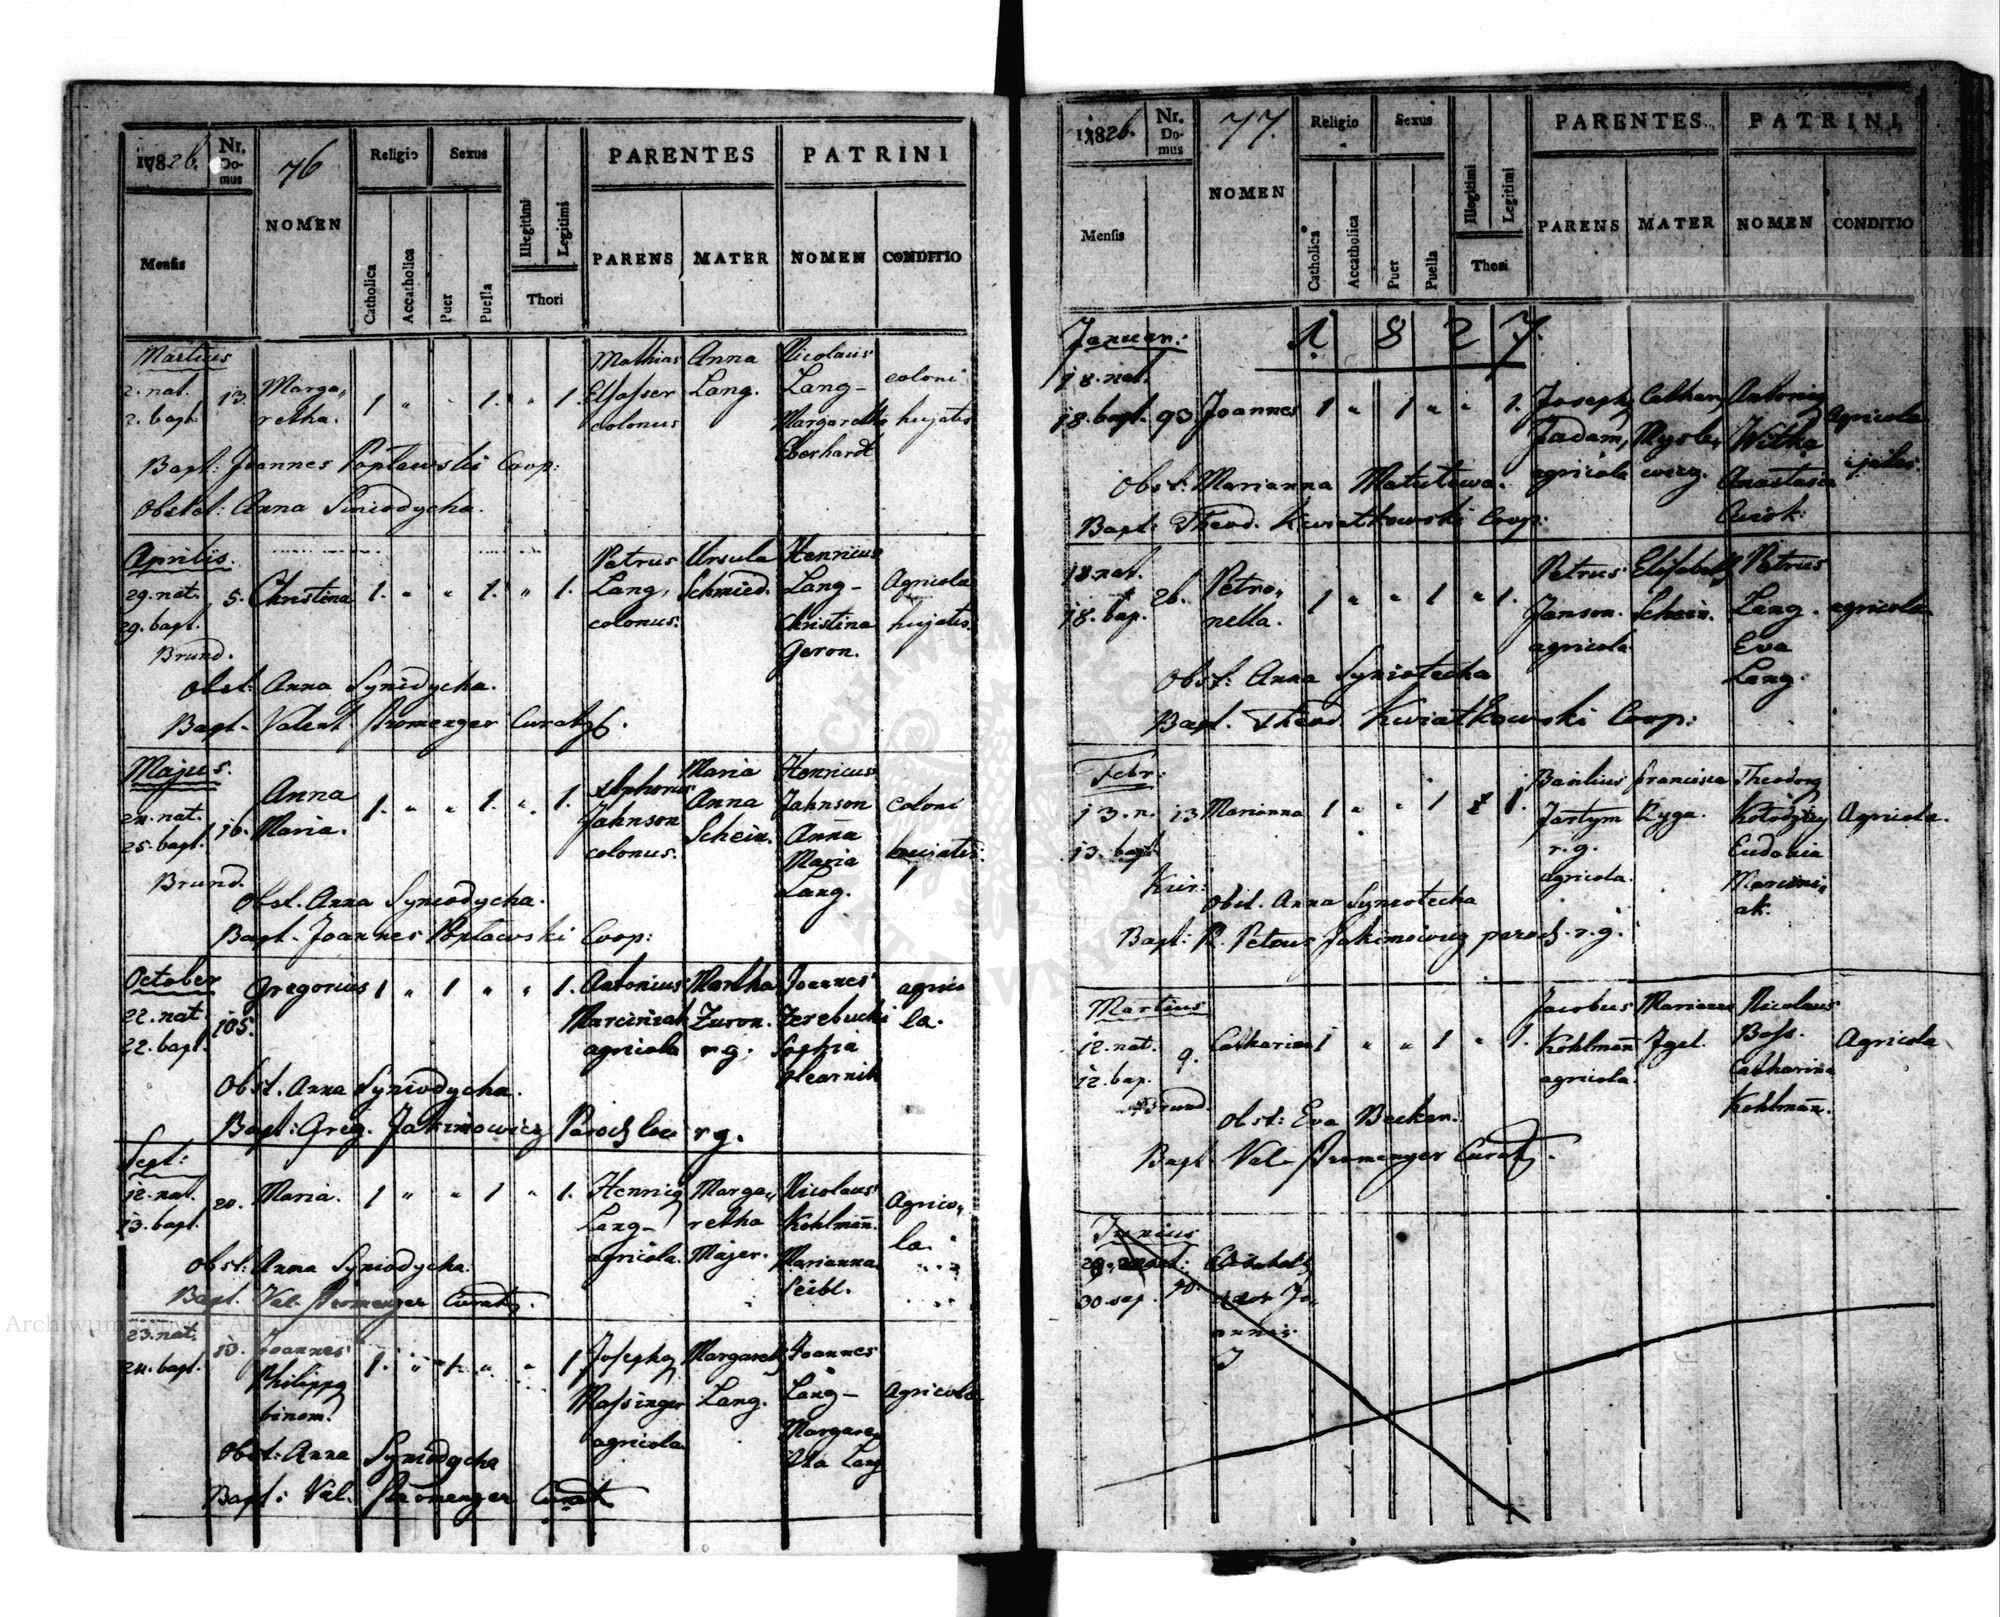 1826. Nr. Domus 76 Religio Sexus Illegitimi Legitimi PARENTES PATRINI
Mensis NOMEN Catholica Accatholica Puer Puella Thori PARENS MATER NOMEN CONDITIO
Martius Mathias Anna Nicolaus
2. nat. 13. Marga- 1 " " 1. " 1. Elsasser Lang. Lang- coloni
2. bapt. retha. colonus Margaretha hujates
Bapt: Joannes Poplawski Coop: Eberhardt
Obstet: Anna Siniodycha.
Aprilis. Petrus Ursula Henricus
29. nat. 5. Christina 1. " " 1. " 1. Lang, Schmied. Lang- Agricola
29. bapt. colonus. Christina hujates.
Brund. Geron.
Obst: Anna Syniodycha.
Bapt- Valent. Stromenger Curatus.
Majus. Maria Henricus
24. nat. 16. Anna 1. " " 1. " 1. Jahnson Anna Jahnson coloni
25. bapt. Maria. colonus. Schein. Anna
Brund. Maria
Obst. Anna Syniodycha. Lang.
Bapt- Joannes Poplawski Coop:
October Gregorius 1 " 1 " " 1. Antonius Martha Joannes agrico
22. nat. 105. Marciniak Zuron. Terebucki la.
22. bapt. agricola r.g. Sophia
Obst. Anna Syniodycha. Olearnik
Bapt: Greg. Jakimowicz Paroch loci r g.
Sept:
12. nat. 20. Maria. 1 " " 1 " 1. Henricus Marga- Nicolaus Agrico-
13. bapt. Lang- retha Kohlmann. la.
agricola. Majer. Marianna
Obst: Anna Syniodycha. Seibl.
Bapt. Val- Stromenger Curatus.
23. nat. 13. Joannes 1. " 1. " " 1. Josephus Margareth Joannes
24. bapt. Philippus Massinger Lang. Lang- Agricola
binom. agricola. Margare-
Obst: Anna Syniodycha tha Lang
Bapt: Val. Stromenger Curat
1826. Nr. Domus 77. Religio Sexus Illegitimi Legitimi PARENTES PATRINI
Mensis NOMEN Catholica Accatholica Puer Puella Thori PARENS MATER NOMEN CONDITIO
Januar.: 1 8 2 7.
18. nat. Joseph Cathar. Antonius
18. bapt. 93 Joannes 1 " 1 " " 1. Fadam, Mysle- Witka Agricola
agricola wicz. Anastasia
Obst: Marianna Matutowa.
Bapt: Theod. Kwiatkowski Coop:
18. nat. 26. Petro- 1 " " 1 " 1. Petrus Elisabeth Petrus
18. bap. nella. Janson. Schein. Lang. agricola
agricola Eva
Obst: Anna Syniotecha Lang.
Bapt. Theod. Kwiatkowski Coop:
Febr: Basilius Francisca Theodorus
13. n. 13 Marianna 1 " " 1 1. Jartym Ryga. Agricola.
13. bapt r. g. Eudokia
agricola. Marcini-
Obst. Anna Syniotecha ak.
Bapt: R. Petrus Jakimowicz paroch. r. g.
Martius Jacobus Marianna Nicolaus
12. nat. 9. Catharina 1 " " 1 " 1. Kohlmann Igel. Boss. Agricola
12. bap. agricola. Catharina
Brund. Kohlmann.
Obst: Eva Becker.
Bapt. Val- Stromenger Curatus.
Junius
29. 40. Elisabeth
30. Jo-
annis.
Archiwum Główne Akt Dawnych